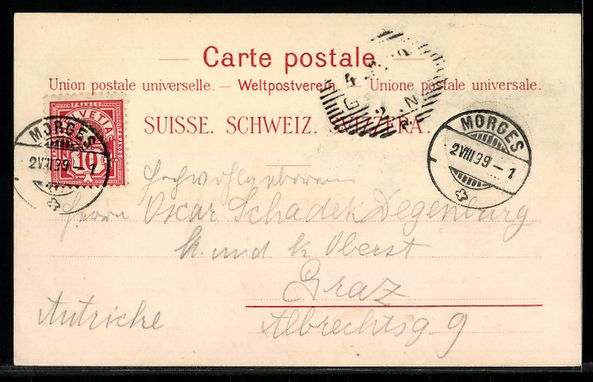 Carte postale.
Union postale universelle. — Weltpostverein. — Unione postale universale.
SUISSE. SCHWEIZ. SVIZZERA.
FRANCO
HELVETIA
10
MORGES
2 VIII 99 – 1
MORGES
2 VIII 99 – 1
Hochwohlgeboren
Herrn Oscar Schadek Degenburg
k. und k. Oberst
Graz
Autriche
Albrechtsg. 9